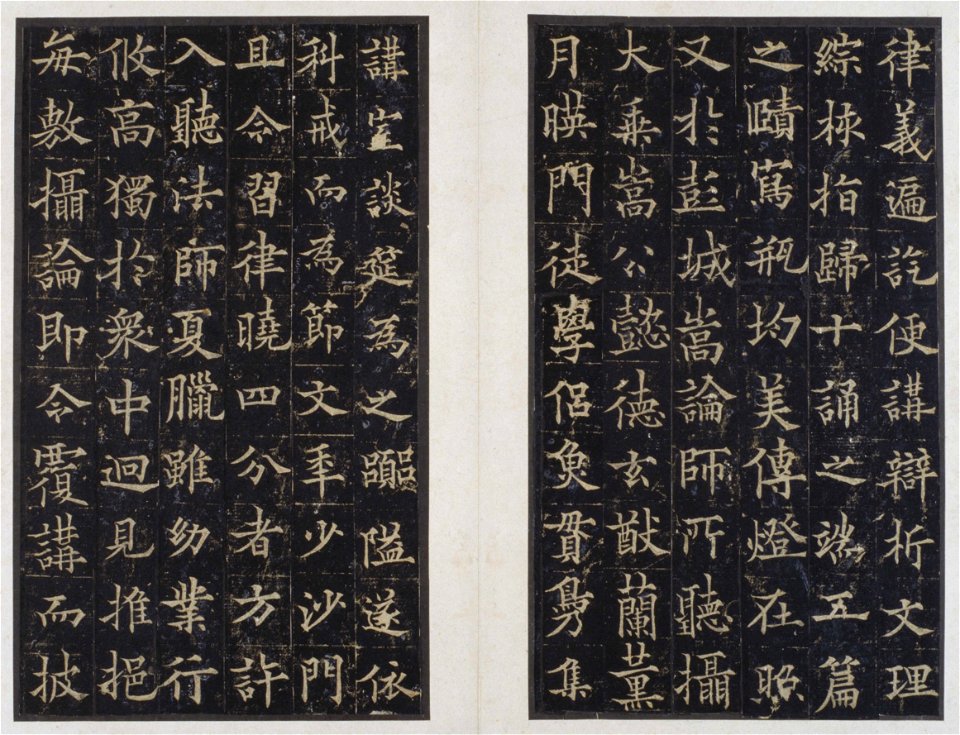 律義遍訖便講辯析文理
綜核指歸十誦之端五篇
之賾寫瓶均美傳燈在照
又於彭城嵩論師所聽攝
大乘嵩公懿德玄猷蘭薰
月暎門徒學侶魚貫鳧集
講室談筵為之嚻隘遂依
科戒而為節文年少沙門
且令習律曉四分者方許
入聽法師夏臘雖幼業行
攸高獨於衆中迥見推挹
每敷攝論即令覆講而披